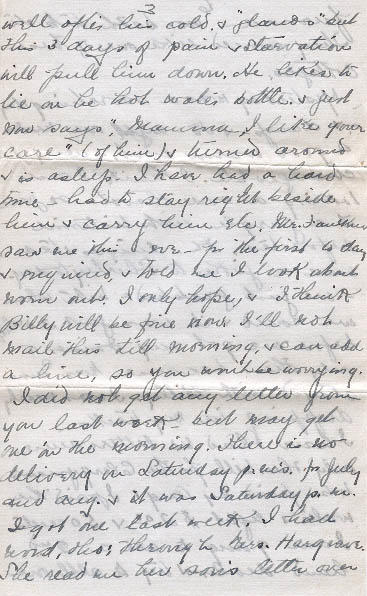 3
well after his cold & "glands" but
this 3 days of pain & starvation
will pull him down. He likes to
lie on he hot water bottle & just
now says "Mamma, I like your
care" (of him) & turned around
& is asleep. I have had a hard
time - had to stay right beside
him & carry him etc. Mr.
saw me this eve - for the first to day
& enquired, & told me I look about
worn out. I only hope, & I think
Billy will be fine now. I'll not
mail this till morning, & can add
a line, so you wont be worrying.
I did not get any letter from
you last week - but may get
one in the morning. There is no
delivery on Saturday p.m.'s. for July
and Aug. & it was Saturday p.m.
I got one last week. I had
word, tho', through Mrs. Hargrave.
She read me her son's letter over